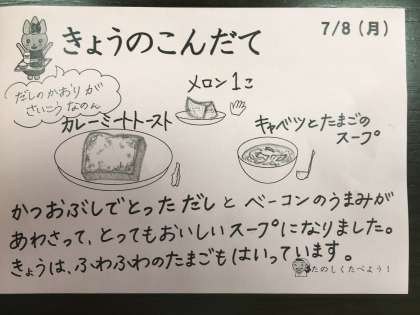 きょうのこんだて
7/8(月)
だしのかおりが
さいこうなのん
メロン1こ
カレーミートトースト
キャベツとたまごの
スープ
かつおぶしでとった だしと ベーコンのうまみが
あわさって、とってもおいしいスープになりました。
きょうは、ふわふわのたまごもはいっています。
たのしくたべよう！